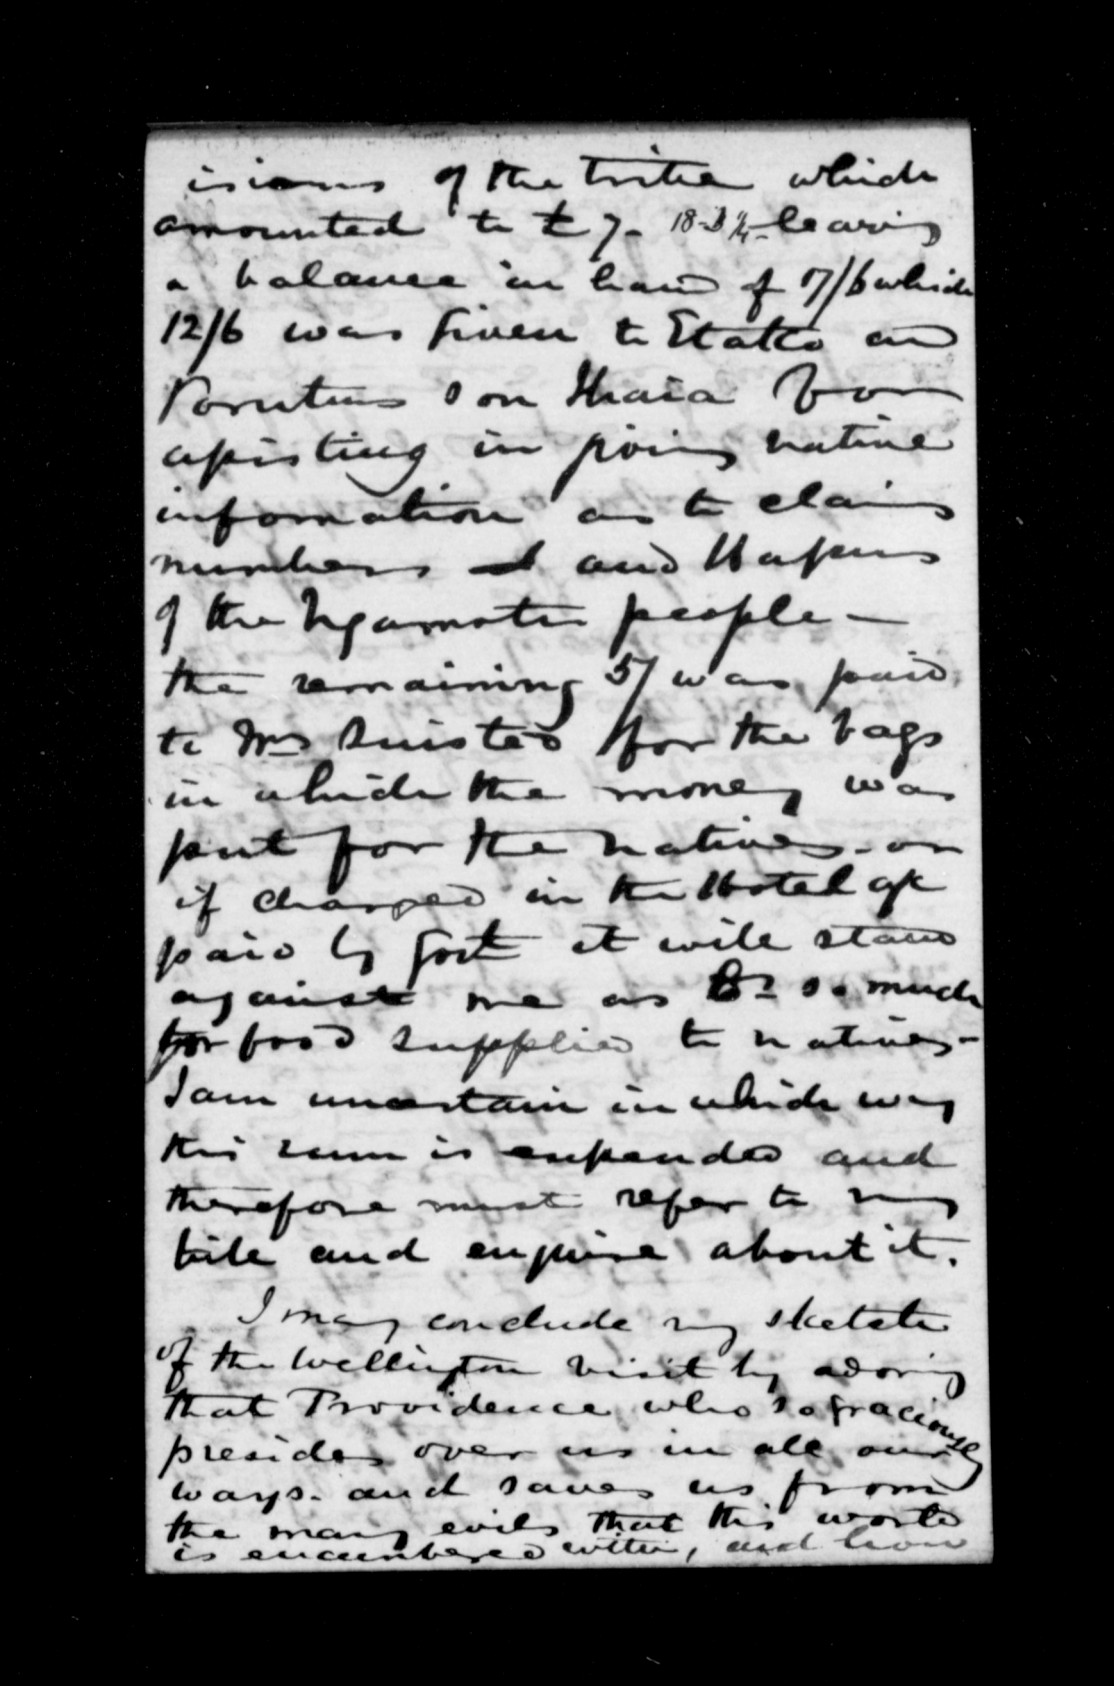 isions of the tribe which
amounted to £7. 18-3¼ - leaving
a balance in hand of 17/6 which
12/6 was given to Etako and
son Ihaia for
assisting in giving native
information as to claims
numbers and Hapus
of the Ngamotu people —
the remaining 5/ was paid
to Mrs for the bags
in which the money was
put for the natives - or
if charged in the Hotel a/c
paid by Govt it will stand
against me as so much
for food supplied to natives -
I am uncertain in which way
this sum is expended and
therefore must refer to my
bill and enquire about it.
I may conclude my sketch
of the Wellington visit by adoring
that Providence who so graciously
presides over us in all our
ways - and saves us from
the many evils that this world
is encumbered with, and how